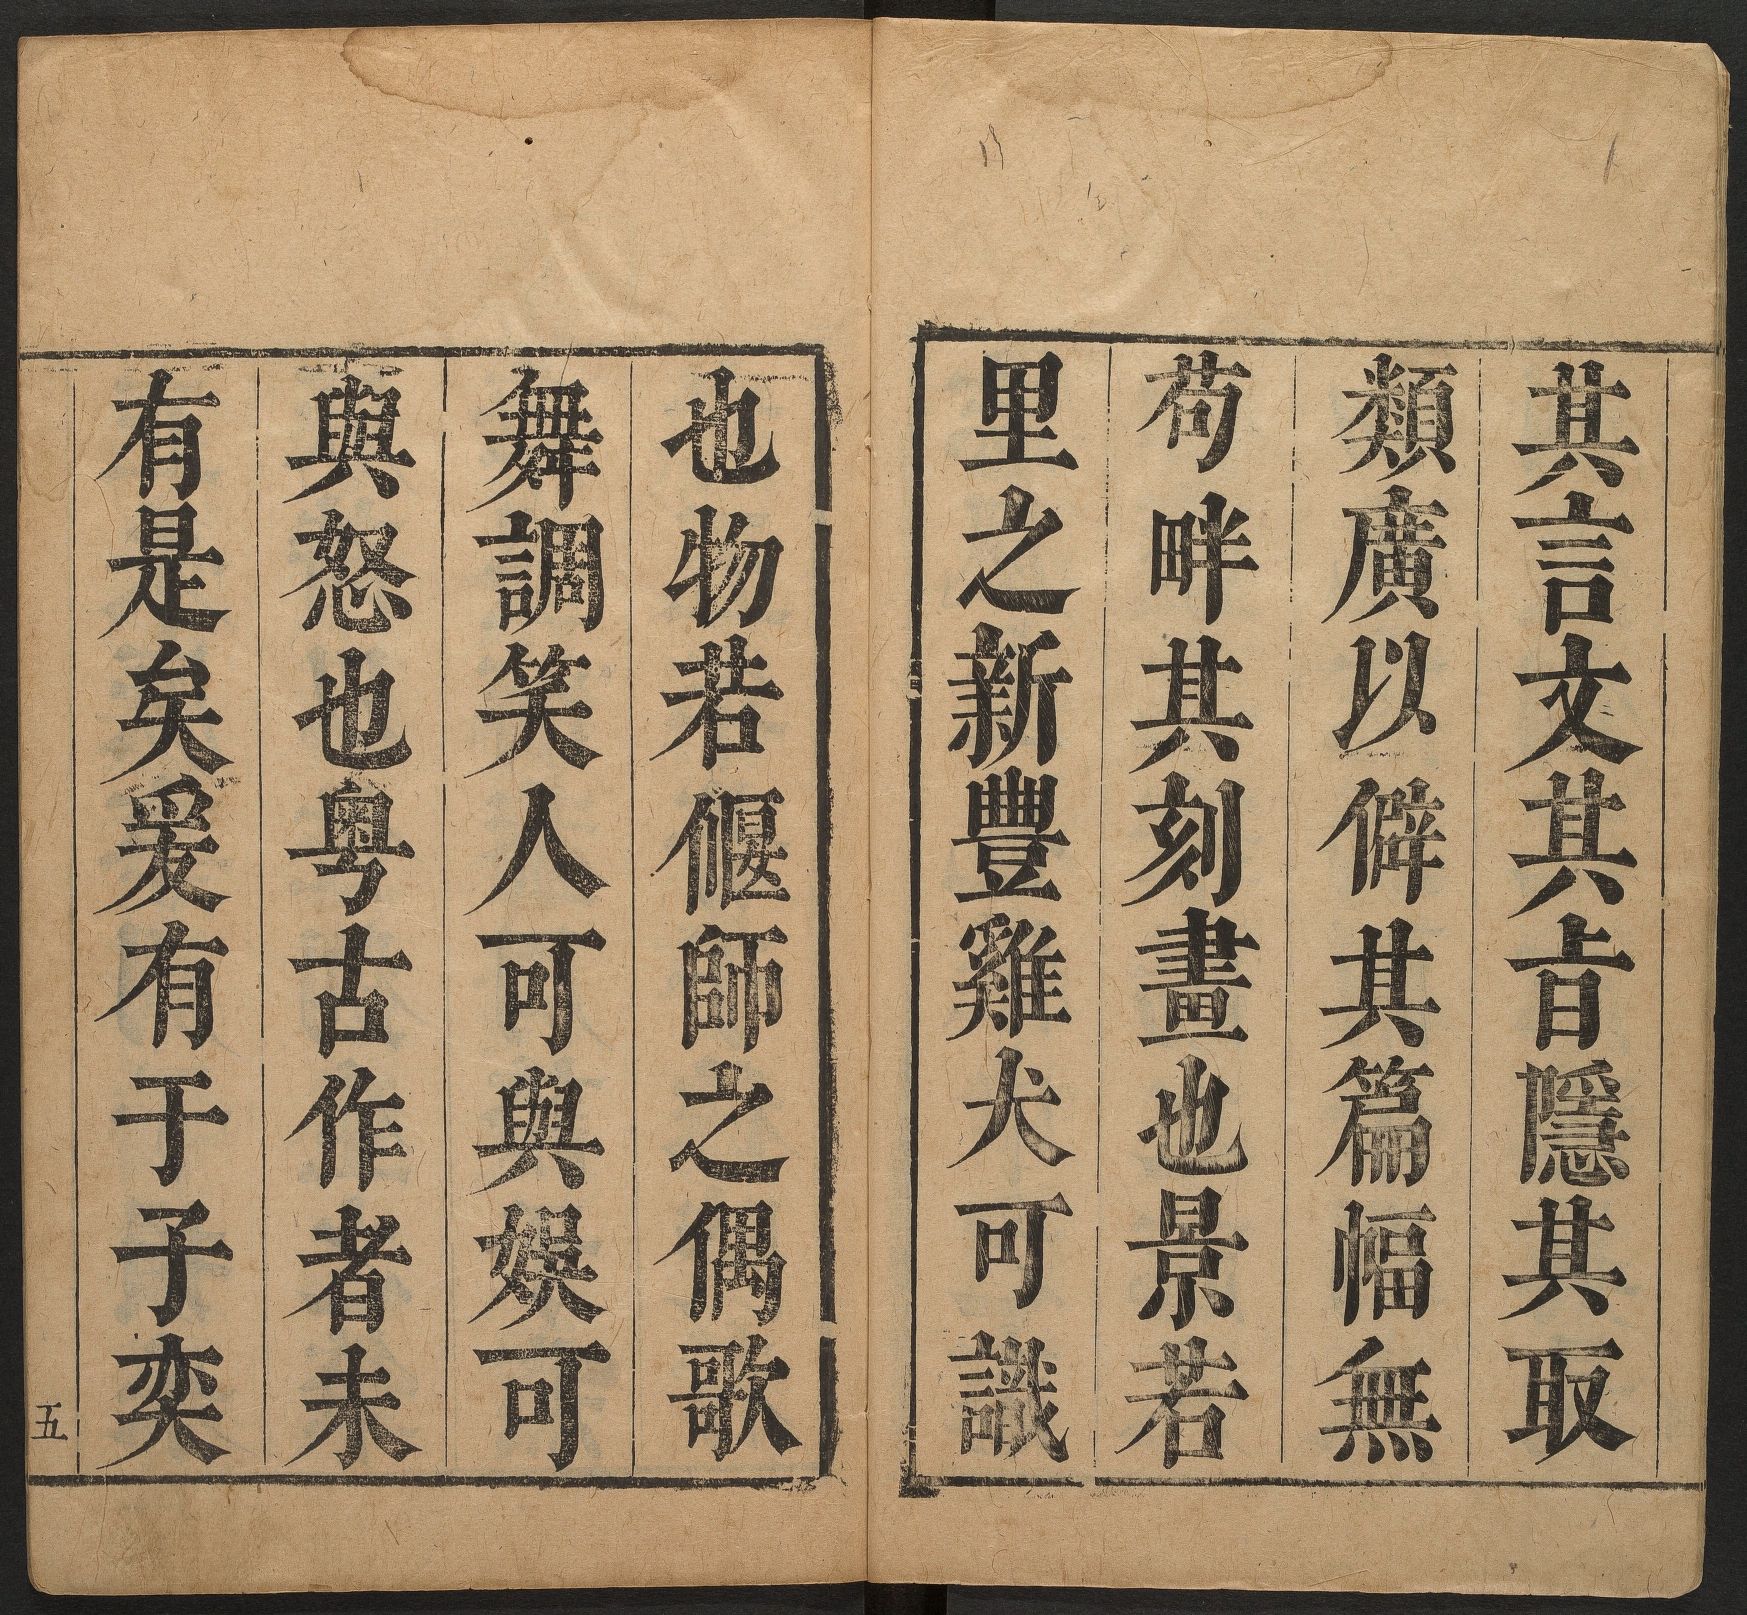 其言文其㫖隱其取
類廣以僻其篇幅無
苟畔其刻畫也景若
里之新豐雞犬可識
也物若偃師之偶歌
舞調笑人可與娛可
與怒也粤古作者未
有是矣爰有于子奕
五